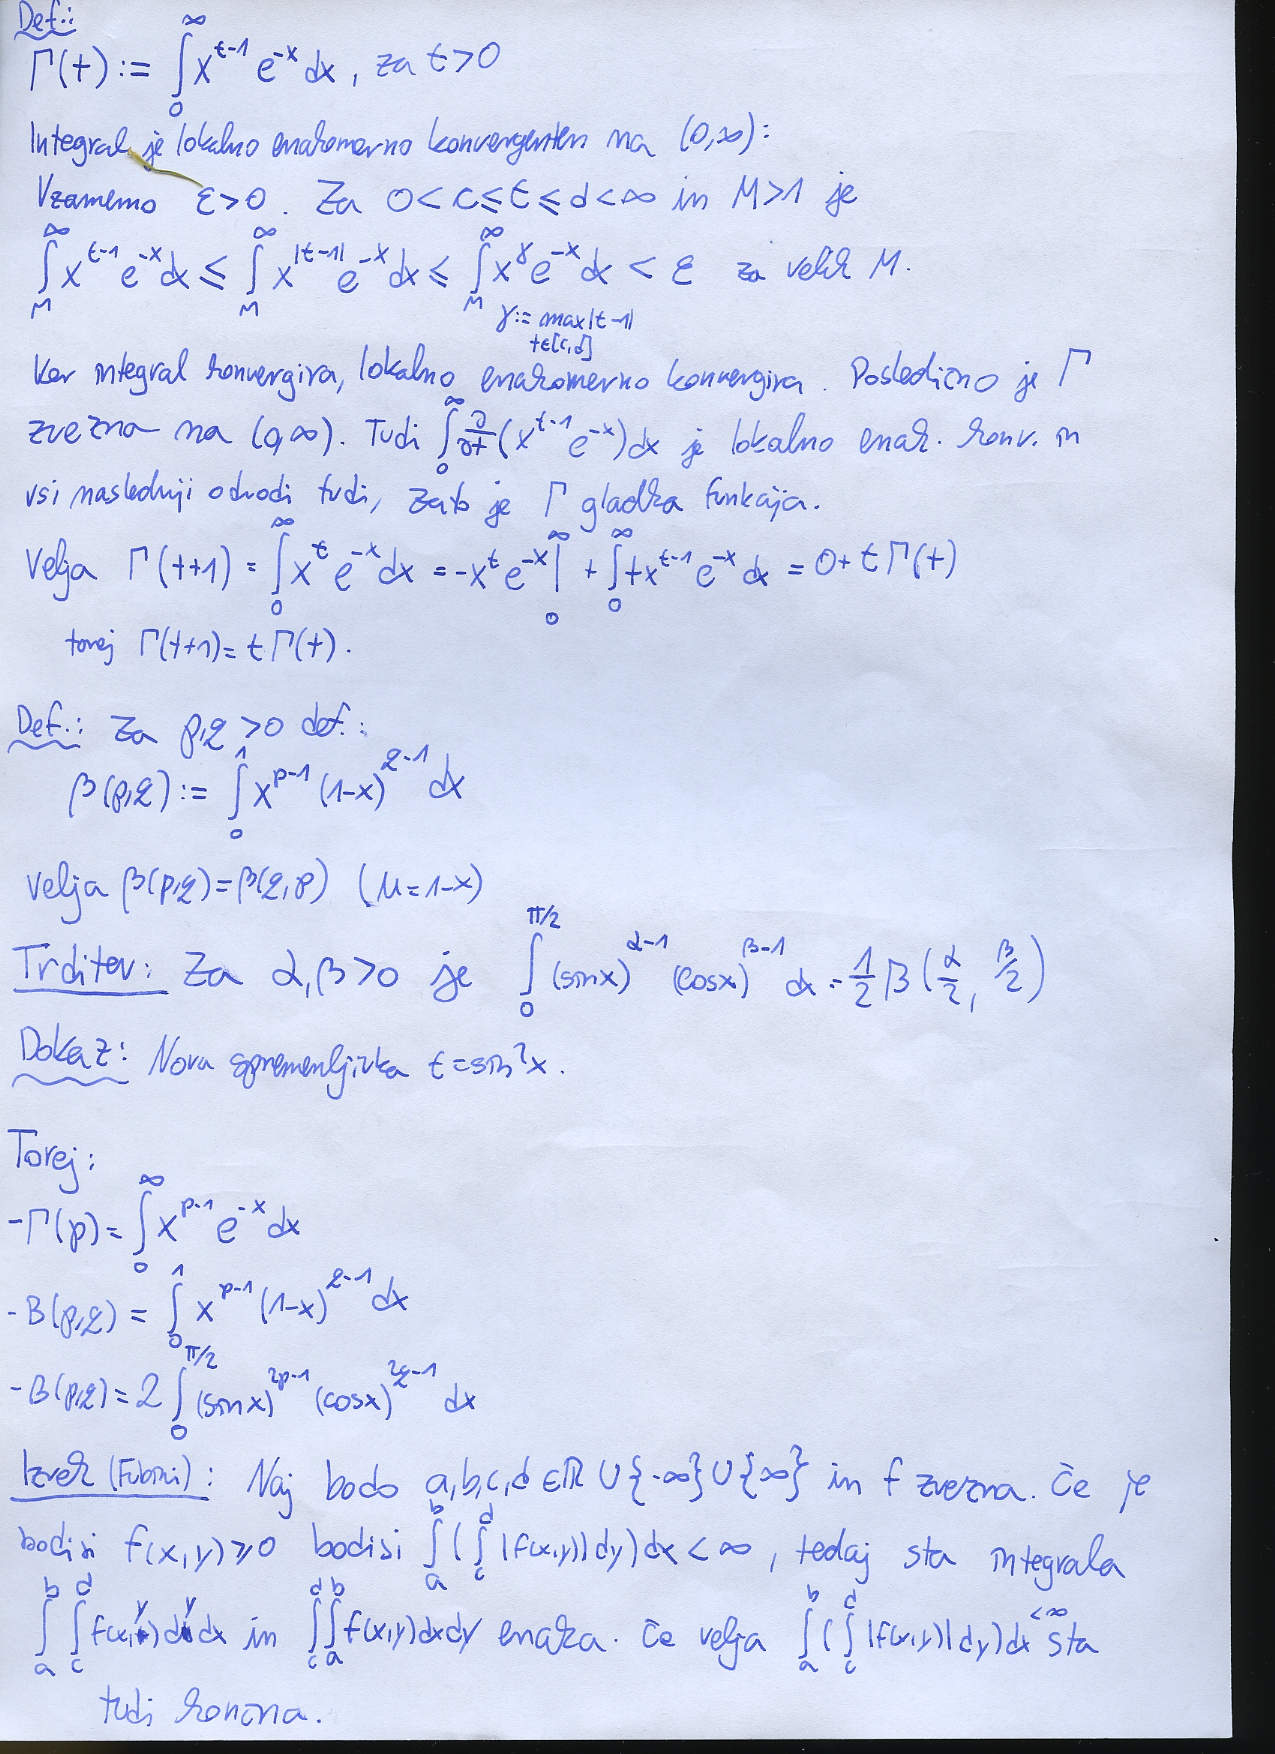 Def.:
Γ(t) := ∫₀^∞ x^{t-1} e^{-x} dx, za t>0
Integral je lokalno enakomerno konvergenten na (0,∞):
Vzamemo ε>0. Za 0<c≤t≤d<∞ in M>1 je
∫_M^∞ x^{t-1} e^{-x} dx ≤ ∫_M^∞ x^{|t-1|} e^{-x} dx ≤ ∫_M^∞ x^γ e^{-x} dx < ε za velik M.
γ := max|t-1|
t∈[c,d]
Ker integral konvergira, lokalno enakomerno konvergira. Posledično je Γ
zvezna na (0,∞). Tudi ∫₀^∞ ∂/∂t (x^{t-1} e^{-x}) dx je lokalno enak. konv. in
vsi naslednji odvodi tudi, zato je Γ gladka funkcija.
Velja Γ(t+1) = ∫₀^∞ x^t e^{-x} dx = -x^t e^{-x} |₀^∞ + ∫₀^∞ t x^{t-1} e^{-x} dx = 0 + t Γ(t)
torej Γ(t+1) = t Γ(t).
Def.: Za p,q >0 def.:
β(p,q) := ∫₀^1 x^{p-1} (1-x)^{q-1} dx
Velja β(p,q) = β(q,p) (u=1-x)
Trditev: Za α,β>0 je ∫₀^{π/2} (sinx)^{α-1} (cosx)^{β-1} dx = 1/2 B(α/2, β/2)
Dokaz: Nova spremenljivka t=sin²x.
Torej:
- Γ(p) = ∫₀^∞ x^{p-1} e^{-x} dx
- B(p,q) = ∫₀^1 x^{p-1} (1-x)^{q-1} dx
- B(p,q) = 2 ∫₀^{π/2} (sinx)^{2p-1} (cosx)^{2q-1} dx
Izrek (Fubini): Naj bodo a,b,c,d ∈ℝ ∪{-∞}∪{∞} in f zvezna. Če je
bodisi f(x,y)≥0 bodisi ∫_a^b (∫_c^d |f(x,y)| dy) dx < ∞, tedaj sta integrala
∫_a^b ∫_c^d f(x,y) dy dx in ∫_c^d ∫_a^b f(x,y) dx dy enaka. Če velja ∫_a^b (∫_c^d |f(x,y)| dy) dx <∞ sta
tudi končna.